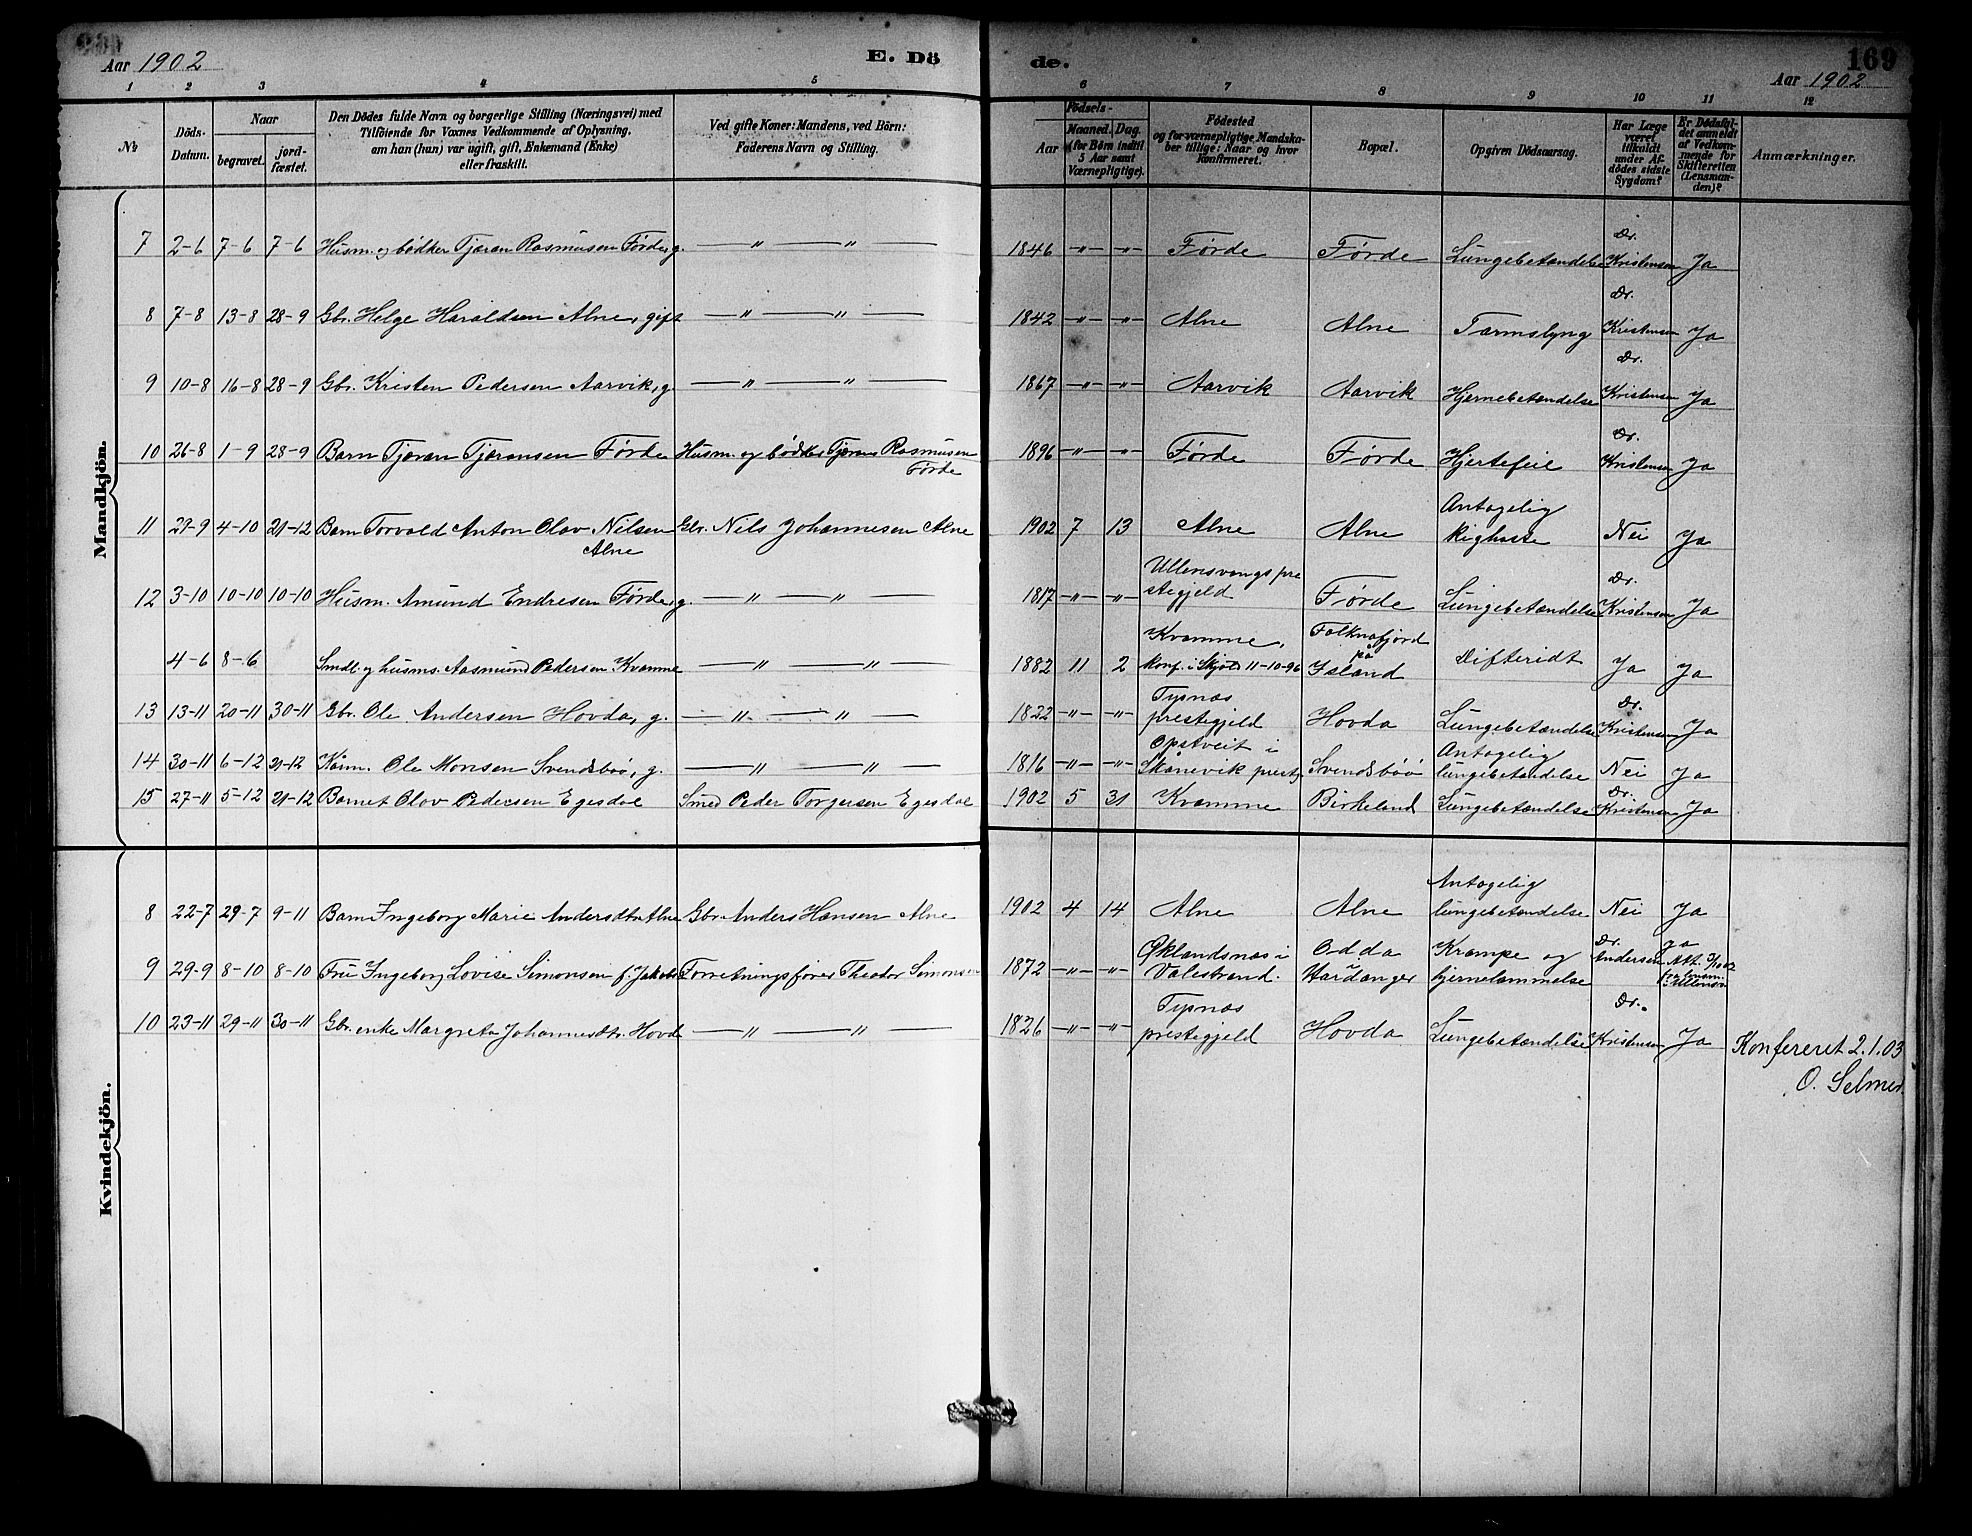 Aar 1902
E. Dö
de.
169
Aar 1902
1 2 3 4 5 6 7 8 9 10 11 12
No
Döds-Datum.
Naar
begravet.
jord-fæstet.
Den Dödes fulde Navn og borgerlige Stilling (Næringsvei) med
Tilföiende for Voxnes Vedkommende af Oplysning,
om han (hun) var ugift, gift, Enkemand (Enke)
eller fraskilt.
Ved gifte Koner: Mandens, ved Börn:
Faderens Navn og Stilling.
Födsels-
Aar
Maaned. Dag.
(for Börn indtil
5 Aar samt
Værnepligtige).
Födested
og for værnepligtige Mandska-
ber tillige: Naar og hvor
Konfirmeret.
Bopæl.
Opgiven Dödsaarsag.
Har Læge
været
tilkaldt
under Af-
dödes sidste
Sygdom?
Er Dödsfal-
det anmeldt
af Vedkom-
mende for
Skifteretten
(Lensman-
den)?
Anmærkninger.
Mandkjön.
7 2-6 7-6 7-6 Husm. og bødker Tjæran Rasmusen Førde, g. —"— —"— 1846 —"— —"— Førde Førde Lungebetændelse Dr. Kristensen Ja
8 7-8 13-8 28-9 Gbr. Helge Haraldsen Alne, gift —"— —"— 1842 —"— —"— Alne Alne Tarmslyng Dr. Kristensen Ja
9 10-8 16-8 28-9 Gbr. Kristen Pedersen Aarvik, g. —"— —"— 1867 —"— —"— Aarvik Aarvik Hjernebetændelse Dr. Kristensen Ja
10 26-8 1-9 28-9 Barn Tjæran Tjæransen Førde Husm. og bødker Tjæran Rasmusen Førde 1896 —"— —"— Førde Førde Hjertefeil Dr. Kristensen Ja
11 29-9 4-10 21-12 Barn Torvald Anton Olav Nilsen Alne Gbr. Nils Johannesen Alne 1902 7 13 Alne Alne Antagelig kighoste Nei Ja
12 3-10 10-10 10-10 Husm. Amund Endresen Førde, g. —"— —"— 1817 —"— —"— Ullensvangs prestegjeld Førde Lungebetændelse Dr. Kristensen Ja
4-6 8-6 Smdl. og husms. Aasmund Pedersen Kvamme —"— —"— 1882 11 2 Kvamme, Konf. i Skjold 11-10-96 Falknafjord på Island Difteridt Ja Ja
13 13-11 20-11 30-11 Gbr. Ole Andersen Hovda, g. —"— —"— 1822 —"— —"— Tysnæs prestigjeld Hovda Lungebetændelse Dr. Kristensen Ja
14 30-11 6-12 21-12 Kårm. Ole Monsen Svendsbøv, g. —"— —"— 1816 —"— —"— Opstveit i Skånevik prestg Svendsbøv Antagelig lungebetændelse Nei Ja
15 27-11 5-12 21-12 Barnet Olov Pedersen Egesdal Smed Peder Torgersen Egesdal 1902 5 31 Kvamme Birkeland Lungebetændelse Dr. Kristensen Ja
Kvindekjön.
8 22-7 29-7 9-11 Barn Ingeborg Marie Andersdtr. Alne Gbr. Anders Hansen Alne 1902 4 14 Alne Alne Antagelig lungebetændelse Nei Ja
9 29-9 8-10 8-10 Fru Ingeborg Lovise Simonsen f. Jakobs Forretningsfører Theodor Simonsen 1872 —"— —"— Øklandsnæs i Valestrand. Odda Hardanger Krampe og hjernelammelse Dr. Andersen Ja Att.
10 23-11 29-11 30-11 Gbr. enke Margreta Johannesdtr. Hovd —"— —"— 1826 —"— —"— Tysnæs prestigjeld Hovda Lungebetændelse Dr. Kristensen Ja
Konfereret 2.1.03
O. Selmer.